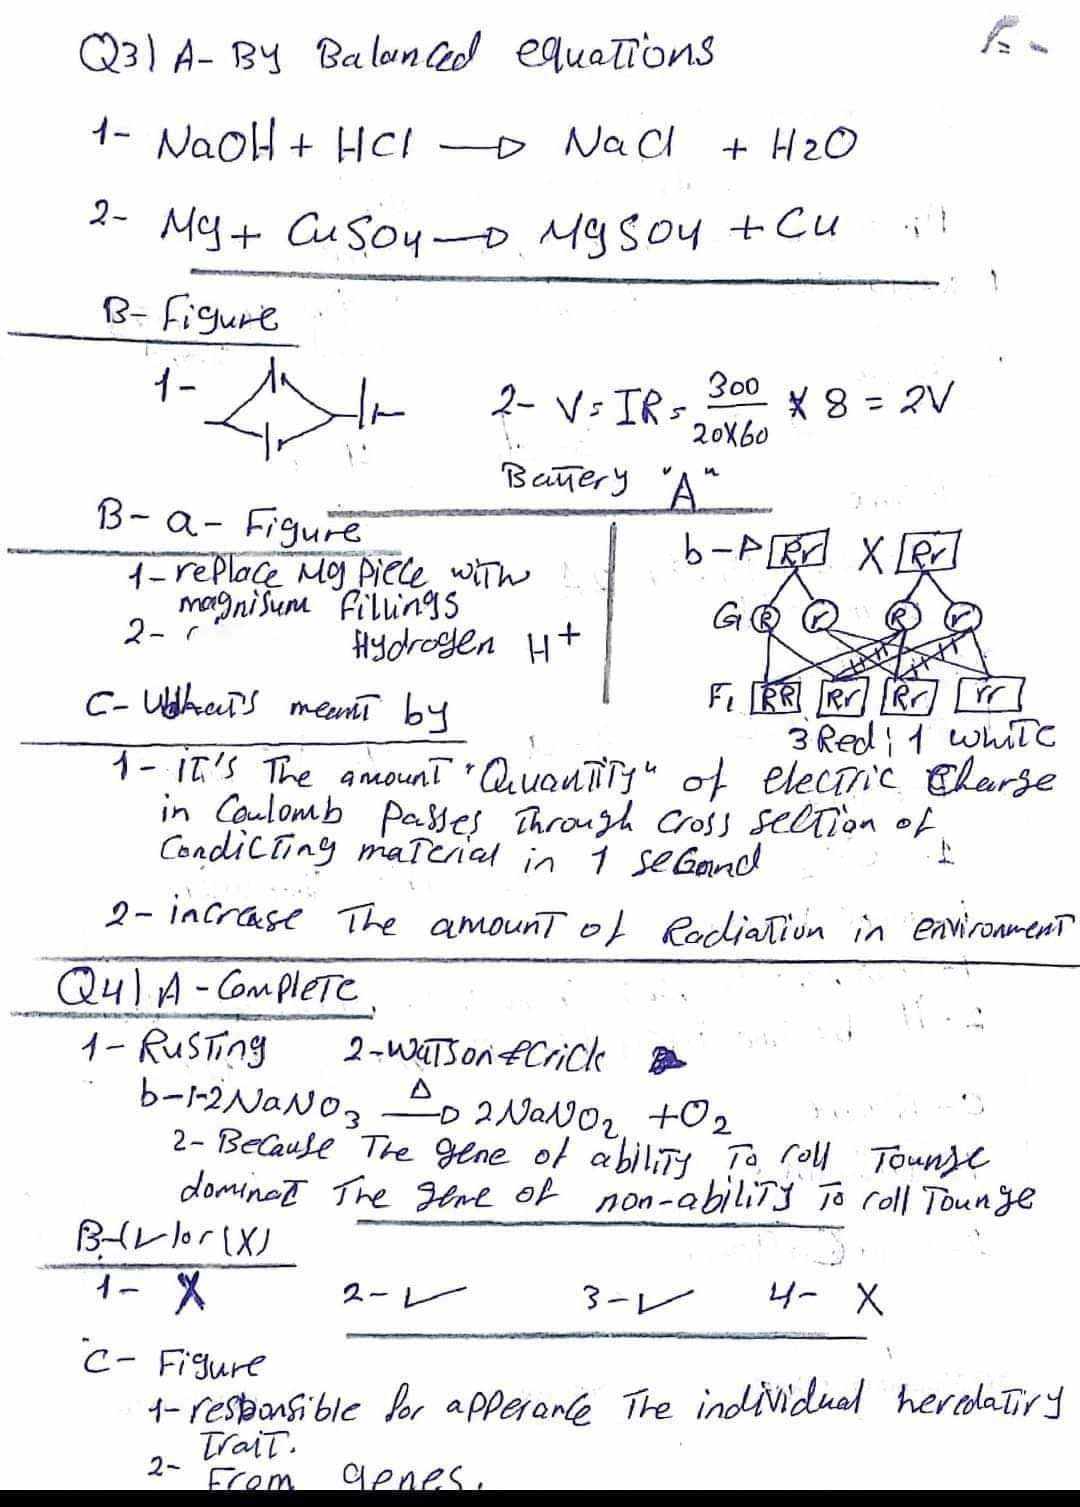 Q3) A- By Balanced equations
1- NaOH + HCl → NaCl + H2O
2- Mg + CuSO4 → MgSO4 + Cu
B- Figure
1-
2- V = IR = 300/20X60 X 8 = 2V
Battery "A"
B- a- Figure
1- replace Mg piece with
magnisum fillings
2-
Hydrogen H+
b- P Rr X Rr
G R r R r
F1 RR Rr Rr rr
3 Red : 1 white
C- Whats meant by
1- iT's The amount "Quantity" of electric Charge
in Coulomb Passes Through cross section of
Condicting material in 1 second
2- increase The amount of Radiation in environment
Q4) A- Complete
1- Rusting 2- Watson & Crick
b-1-2NaNO3 Δ→ 2NaNO2 + O2
2- Because The gene of ability To roll Tounge
dominat The gene of non-ability To roll Tounge
B-(✓) or (X)
1- X 2- ✓ 3- ✓ 4- X
C- Figure
1- responsible for apperance The individual heredatiry
Trait.
2- From genes.